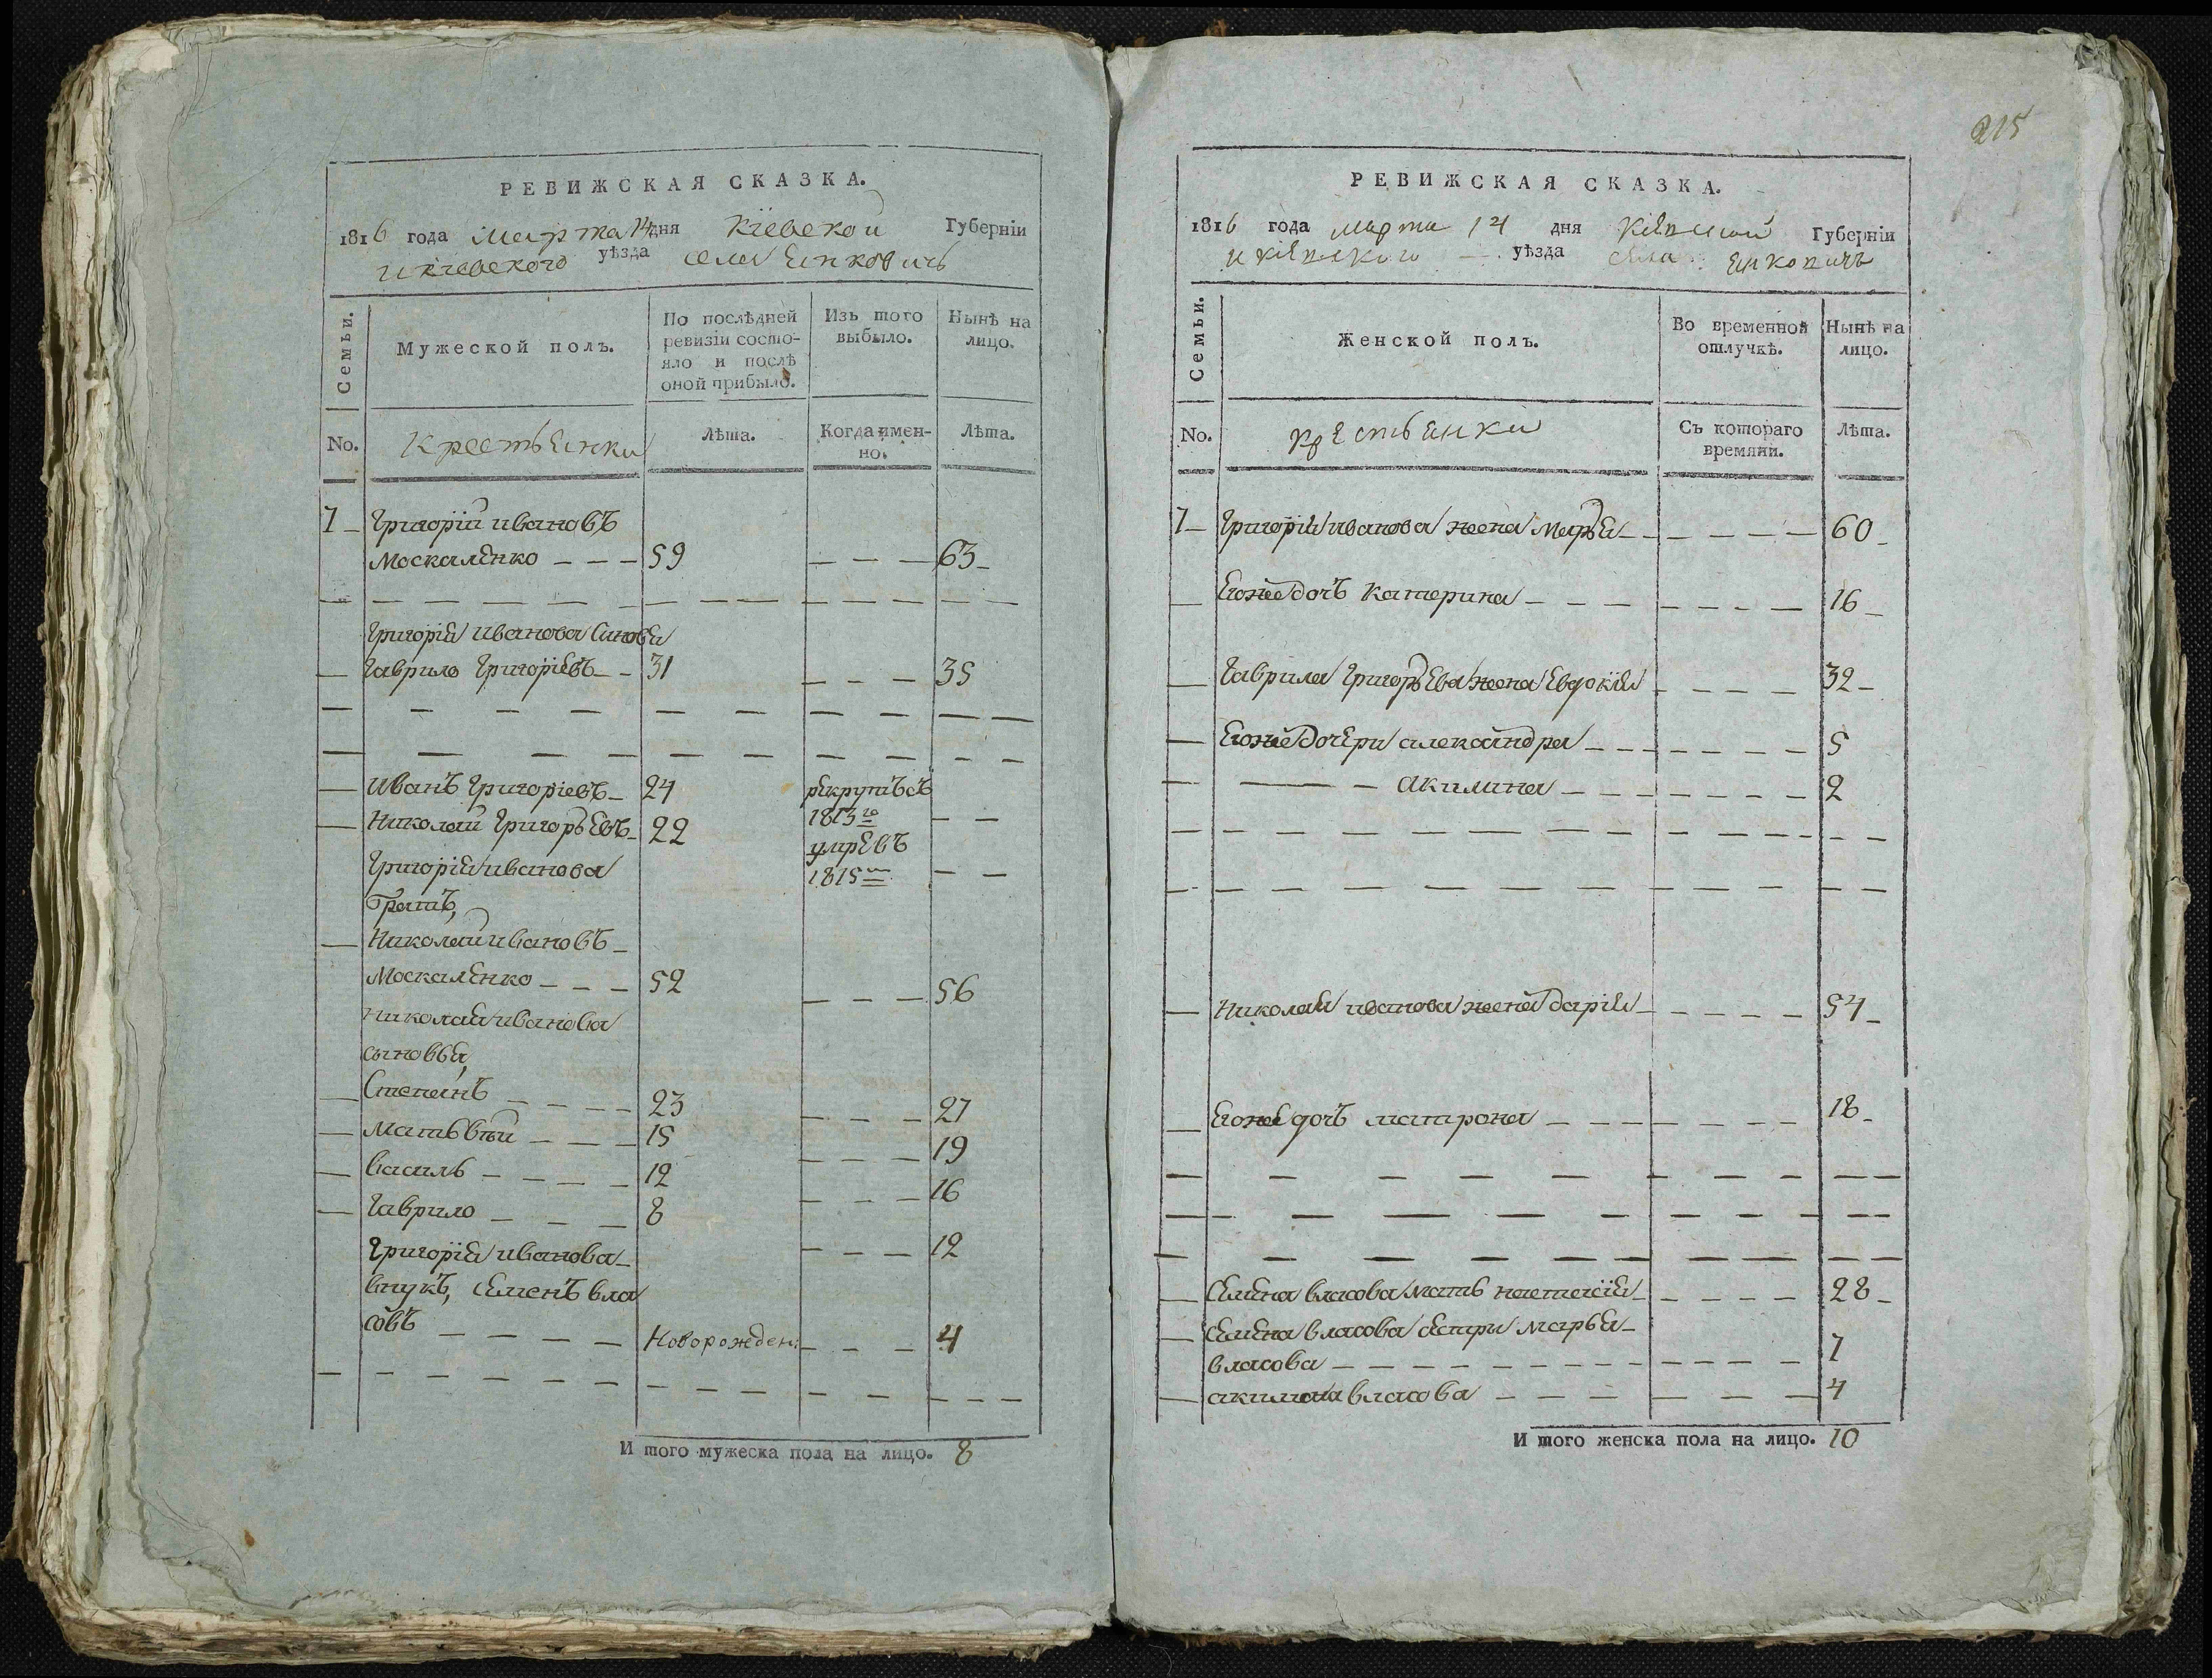 РЕВИЖСКАЯ СКАЗКА.
1816 года Марта 14 дня Кіевской Губерніи
и кіевского уѣзда села Янковичъ
Семьи.
Мужеской полъ.
По послѣдней
ревизіи состо-
яло и послѣ
оной прибыло.
Изъ того
выбыло.
Нынѣ на
лицо.
No.
Крестьянки
Лѣта.
Когда имен-
но.
Лѣта.
1 Григорій ивановъ
Москаленко 59 63
Григорія иванова Синовя
Гаврило Григоріевъ 31 35
Иванъ Григоріевъ 24 рекрутъ съ
1813го
Николай Григорьевъ 22 умревъ
1815м
Григорія иванова
братъ,
Николай ивановъ
Москаленко 52 56
николая иванова
сыновья,
Степанъ 23 27
Матьвѣй 15 19
Василь 12 16
Гаврило 8 12
Григорія иванова
внукъ, Семенъ вла
совъ Новорожден: 4
И того мужеска пола на лицо. 8
215
РЕВИЖСКАЯ СКАЗКА.
1816 года марта 14 дня Кіевской Губерніи
и кіевского уѣзда села Янковичъ
Семьи.
Женской полъ.
Во временной
отлучкѣ.
Нынѣ на
лицо.
No.
крестьянки
Съ котораго
времяни.
Лѣта.
1 Григорія иванова жена Марья 60
Егоже дочъ Катерина 16
Гаврила Григорьева жена Евдокія 32
Егоже дочери александра 5
Акилина 2
Николая иванова жена Дарія 54
Егоже дочъ матрона 18
Семена власова мать настасія 28
Семена власова сестри марья
власова 7
акилина власова 4
И того женска пола на лицо. 10